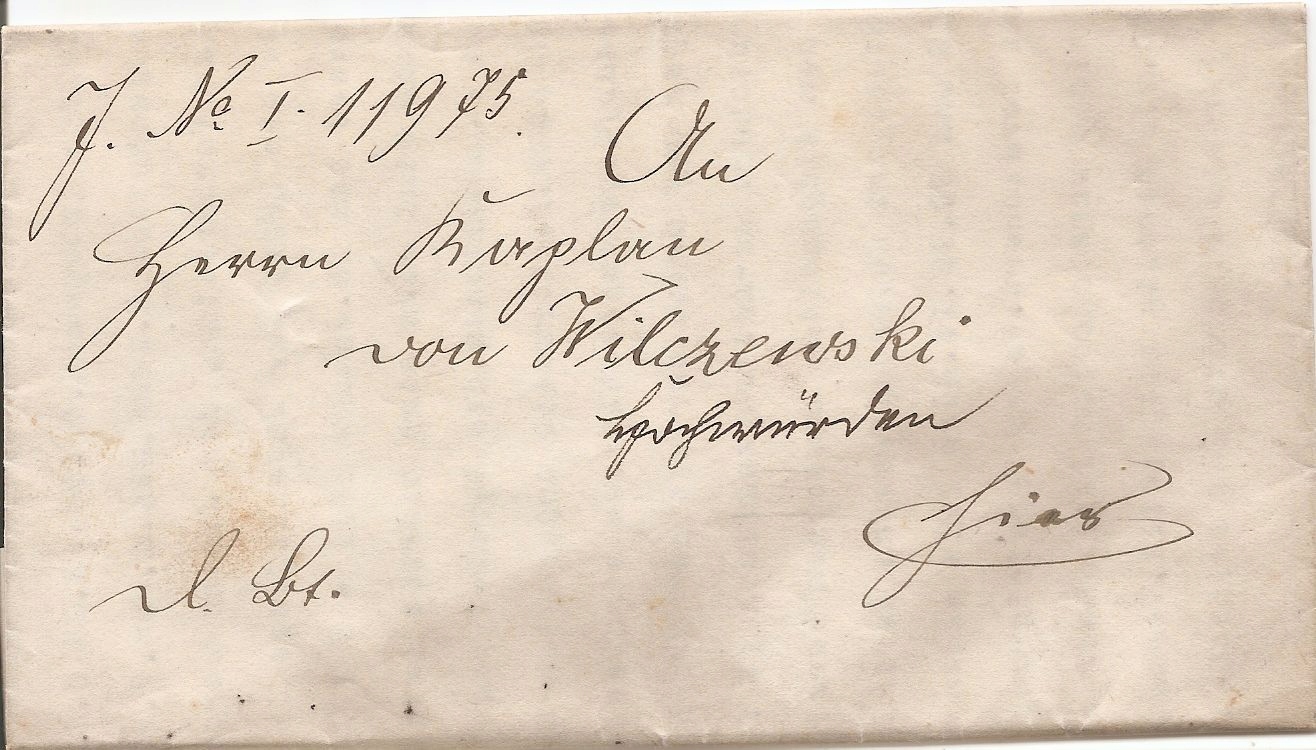 J. No I. 11975.
An
Herrn Kaplan
von Wilczewski
Hochwürden
Hier
d. Bt.